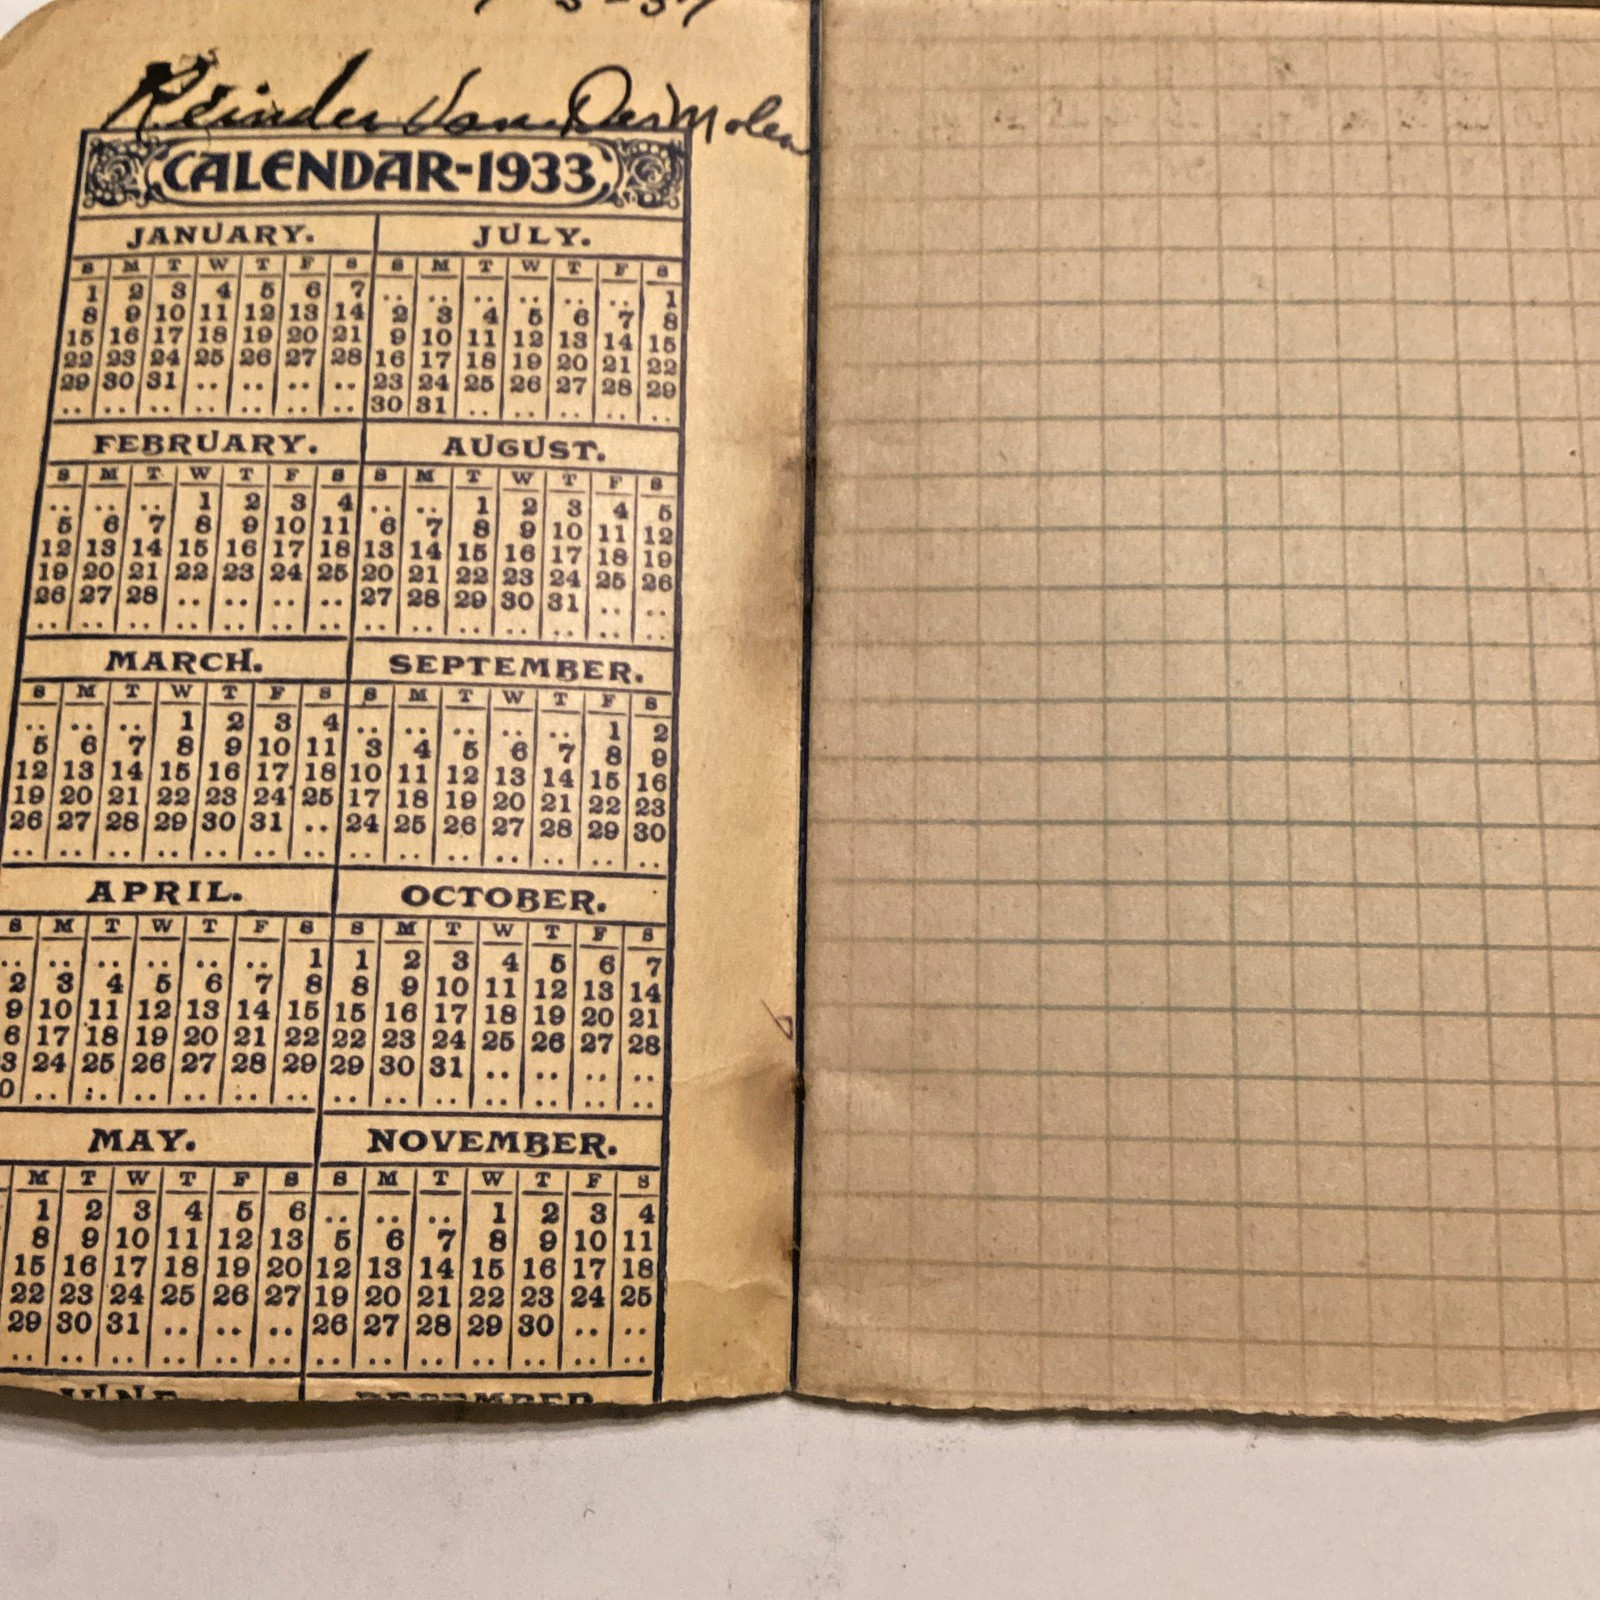 Reinder Van Der Molen
CALENDAR-1933
JANUARY. JULY.
S M T W T F S S M T W T F S
1 2 3 4 5 6 7 .. .. .. .. .. .. 1
8 9 10 11 12 13 14 2 3 4 5 6 7 8
15 16 17 18 19 20 21 9 10 11 12 13 14 15
22 23 24 25 26 27 28 16 17 18 19 20 21 22
29 30 31 .. .. .. .. 23 24 25 26 27 28 29
.. .. .. .. .. .. .. 30 31 .. .. .. .. ..
FEBRUARY. AUGUST.
S M T W T F S S M T W T F S
.. .. .. 1 2 3 4 .. .. 1 2 3 4 5
5 6 7 8 9 10 11 6 7 8 9 10 11 12
12 13 14 15 16 17 18 13 14 15 16 17 18 19
19 20 21 22 23 24 25 20 21 22 23 24 25 26
26 27 28 .. .. .. .. 27 28 29 30 31 .. ..
.. .. .. .. .. .. .. .. .. .. .. .. .. ..
MARCH. SEPTEMBER.
S M T W T F S S M T W T F S
.. .. .. 1 2 3 4 .. .. .. .. .. 1 2
5 6 7 8 9 10 11 3 4 5 6 7 8 9
12 13 14 15 16 17 18 10 11 12 13 14 15 16
19 20 21 22 23 24 25 17 18 19 20 21 22 23
26 27 28 29 30 31 .. 24 25 26 27 28 29 30
.. .. .. .. .. .. .. .. .. .. .. .. .. ..
APRIL. OCTOBER.
S M T W T F S S M T W T F S
.. .. .. .. .. .. 1 1 2 3 4 5 6 7
2 3 4 5 6 7 8 8 9 10 11 12 13 14
9 10 11 12 13 14 15 15 16 17 18 19 20 21
6 17 18 19 20 21 22 22 23 24 25 26 27 28
3 24 25 26 27 28 29 29 30 31 .. .. .. ..
0 .. .. .. .. .. .. .. .. .. .. .. .. ..
MAY. NOVEMBER.
M T W T F S S M T W T F S
1 2 3 4 5 6 .. .. .. 1 2 3 4
8 9 10 11 12 13 5 6 7 8 9 10 11
15 16 17 18 19 20 12 13 14 15 16 17 18
22 23 24 25 26 27 19 20 21 22 23 24 25
29 30 31 .. .. .. 26 27 28 29 30 .. ..
.. .. .. .. .. .. .. .. .. .. .. .. ..
JUNE DECEMBER